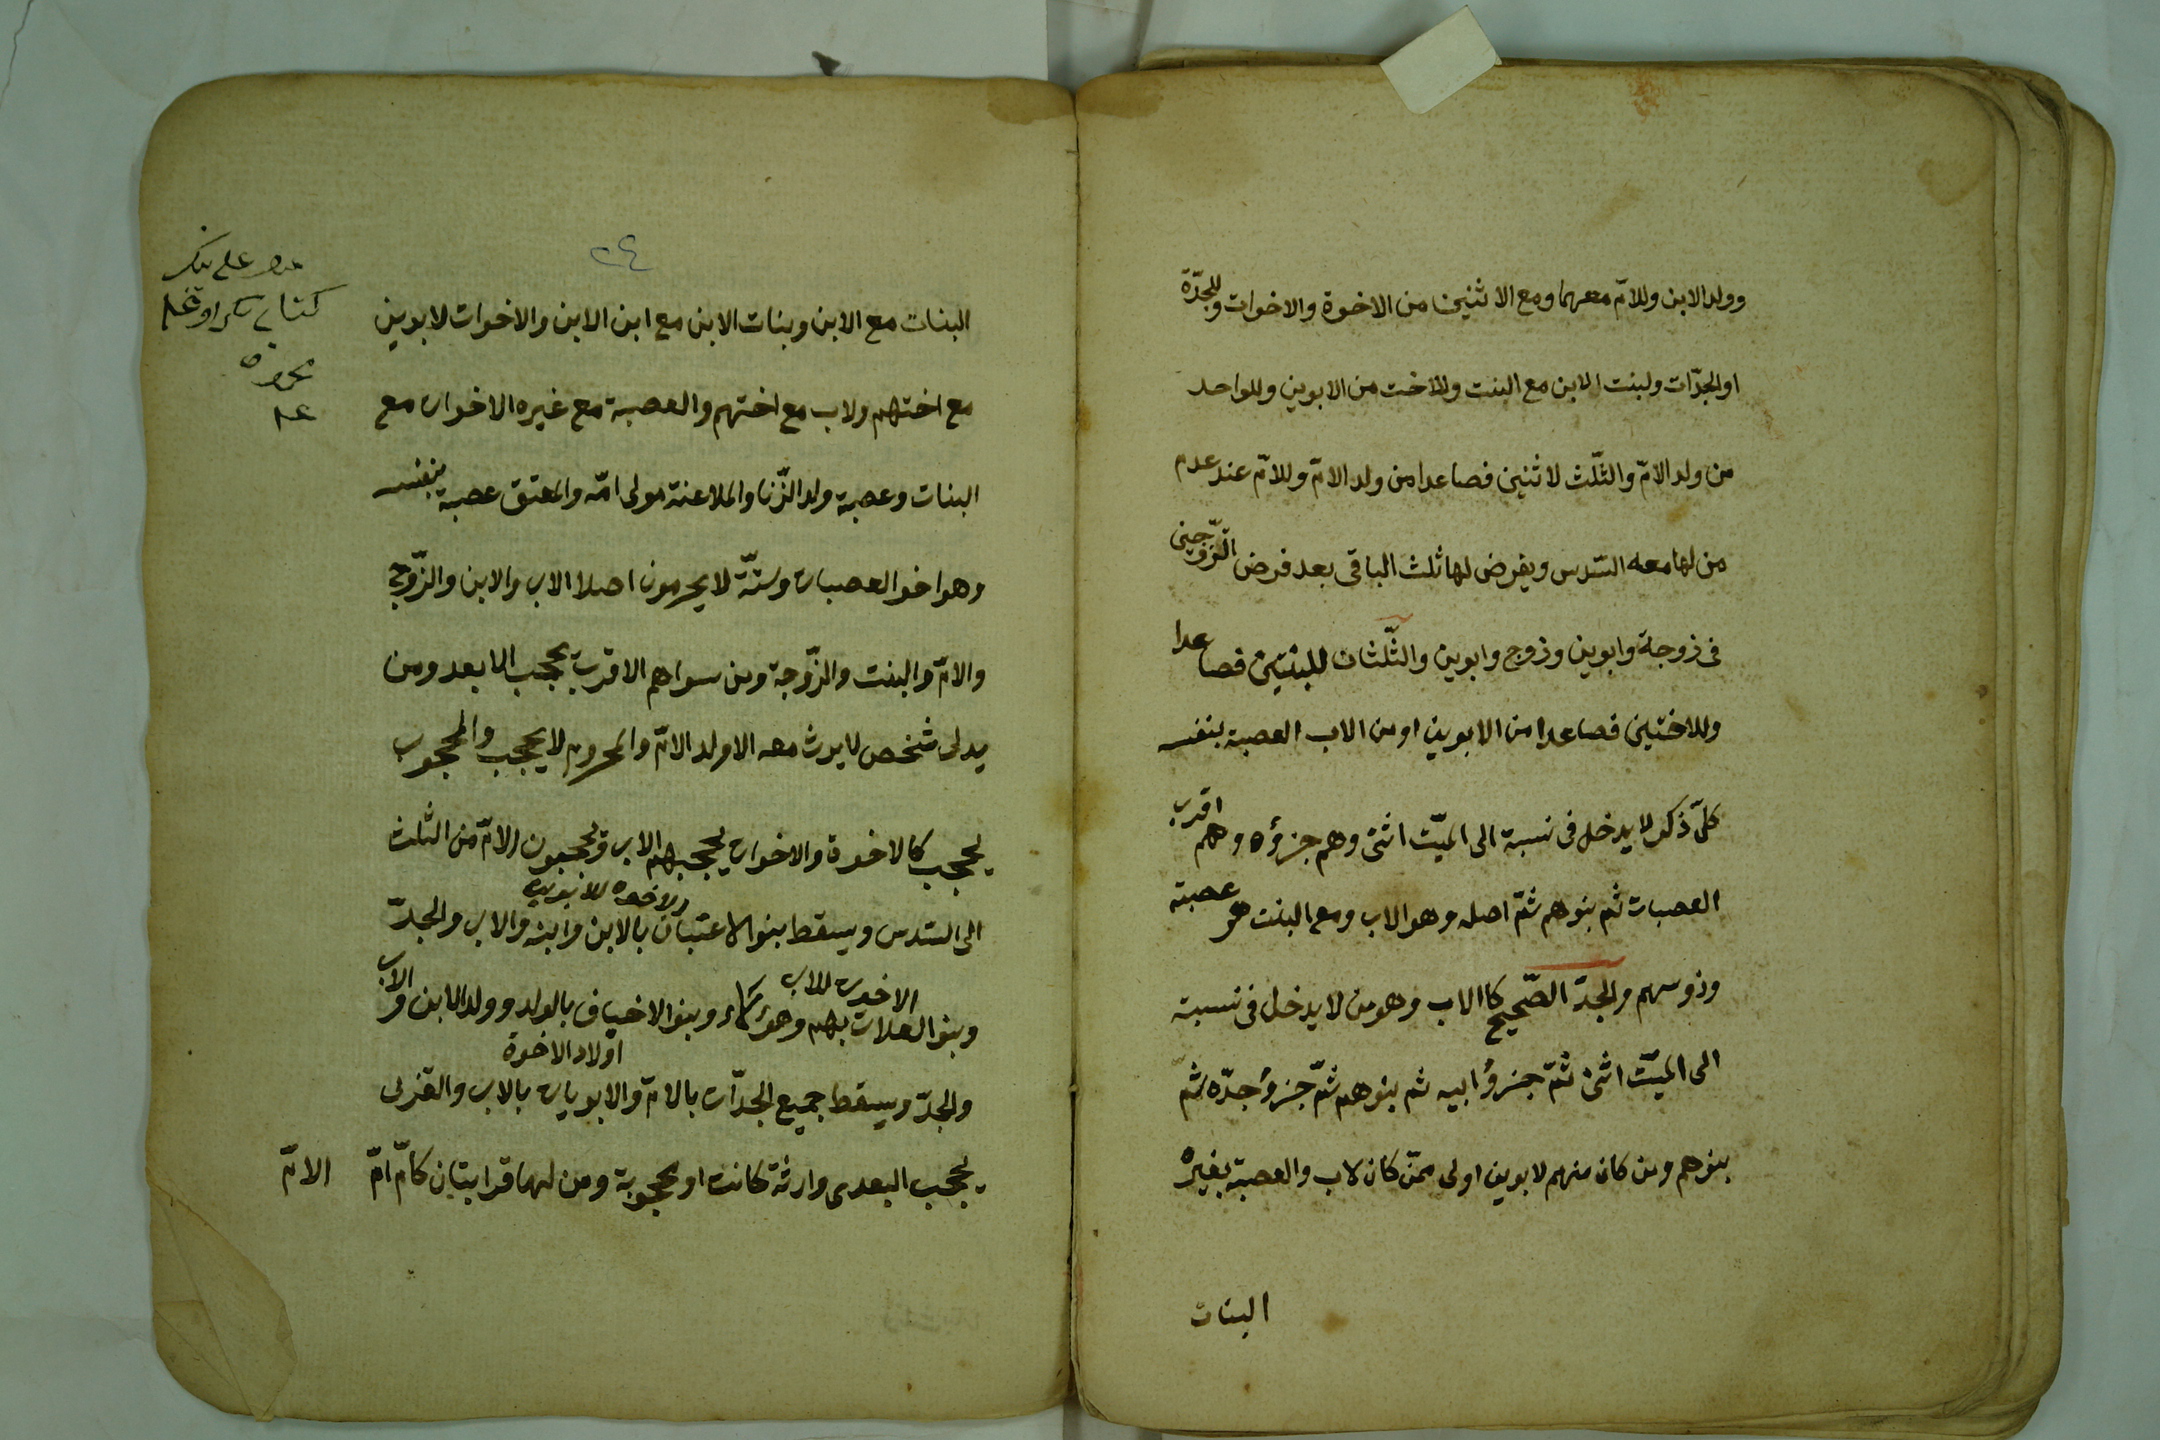 وولد الابن وللامّ معهما ومع الاثنين من الاخوة والاخوات وللجدّة
او الجدّات ولبنت الابن مع البنت وللاخت من الابوين وللواحد
من ولد الامّ والثّلث لاثنين فصاعدا من ولد الامّ وللامّ عند عدم
من لها معه السّدس ويفرض لها ثلث الباقى بعد فرض الزّوجين
فى زوجة وابوين وزوج وابوين والثّلثان للبنتين فصاعدا
وللاختين فصاعدا من الابوين او من الاب العصبة بنفسه
كلّ ذكر لا يدخل فى نسبة الى الميّت انثى وهم جزؤه وهم اقرب
العصبات ثم بنوهم ثمّ اصله وهو الاب ومع البنت هو عصبة
وذو سهم والجدّ الصّحيح كاالاب وهو من لا يدخل فى نسبته
الى الميّت انثى ثمّ جزؤ ابيه ثم بنوهم ثمّ جزؤ جدّه ثم
بنوهم ومن كان منهم لابوين اولى ممّن كان لاب والعصبة بغيره
البنات
٢٤
البنات مع الابن وبنات الابن مع ابن الابن والاخوات لابوين
مع اختهم ولاب مع اختهم والعصبة مع غيره الاخوات مع
البنات وعصبة ولد الزّنا والملاعنة مولى امّه والمعتق عصبة بنفسه
وهو اخر العصبات وستّة لا يحرمون اصلا الاب والابن والزّوج
والامّ والبنت والزّوجة ومن سواهم الاقرب يحجب الابعد ومن
يدلى شخص لا يرث معه الا ولد الامّ والمحروم لا يحجب والمحجوب
يحجب كالاخوة والاخوات يحجبهم الاب ويحجبون الامّ من الثلث
الاخوة للابوين
الى السّدس ويسقط بنو الاعيان بالابن وابنه والاب والجدّ
الاخوت للاب
وبنو العلات بهم وهؤلاء وبنو الاخياف بالولد وولد الابن والاب
اولاد الاخوة
والجدّ ويسقط جميع الجدّات بالامّ والابويات بالاب والقربى
يحجب البعدى وارثة كانت او محجوبة ومن لها قرابتان كامّ امّ الامّ